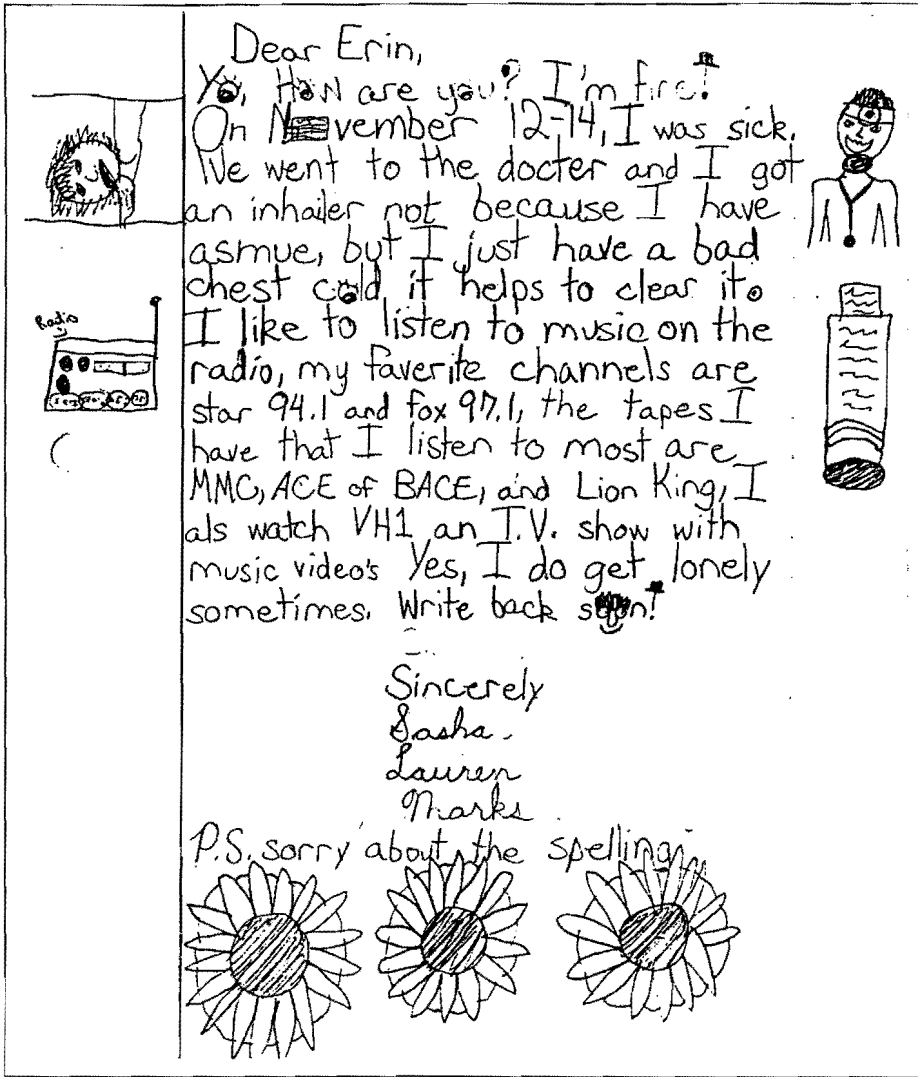 Dear Erin,
Yo, How are you? I'm fine!
On November 12-14, I was sick.
We went to the docter and I got
an inhailer not because I have
asmue, but I just have a bad
chest cold it helps to clear it.
I like to listen to music on the
radio, my faverite channels are
star 94.1 and fox 97.1, the tapes I
have that I listen to most are
MMC, ACE of BACE, and Lion King, I
als watch VH1 an T.V. show with
music video's Yes, I do get lonely
sometimes. Write back soon!
Sincerely
Sasha
Lauren
Marks
P.S. sorry about the spelling
Radio